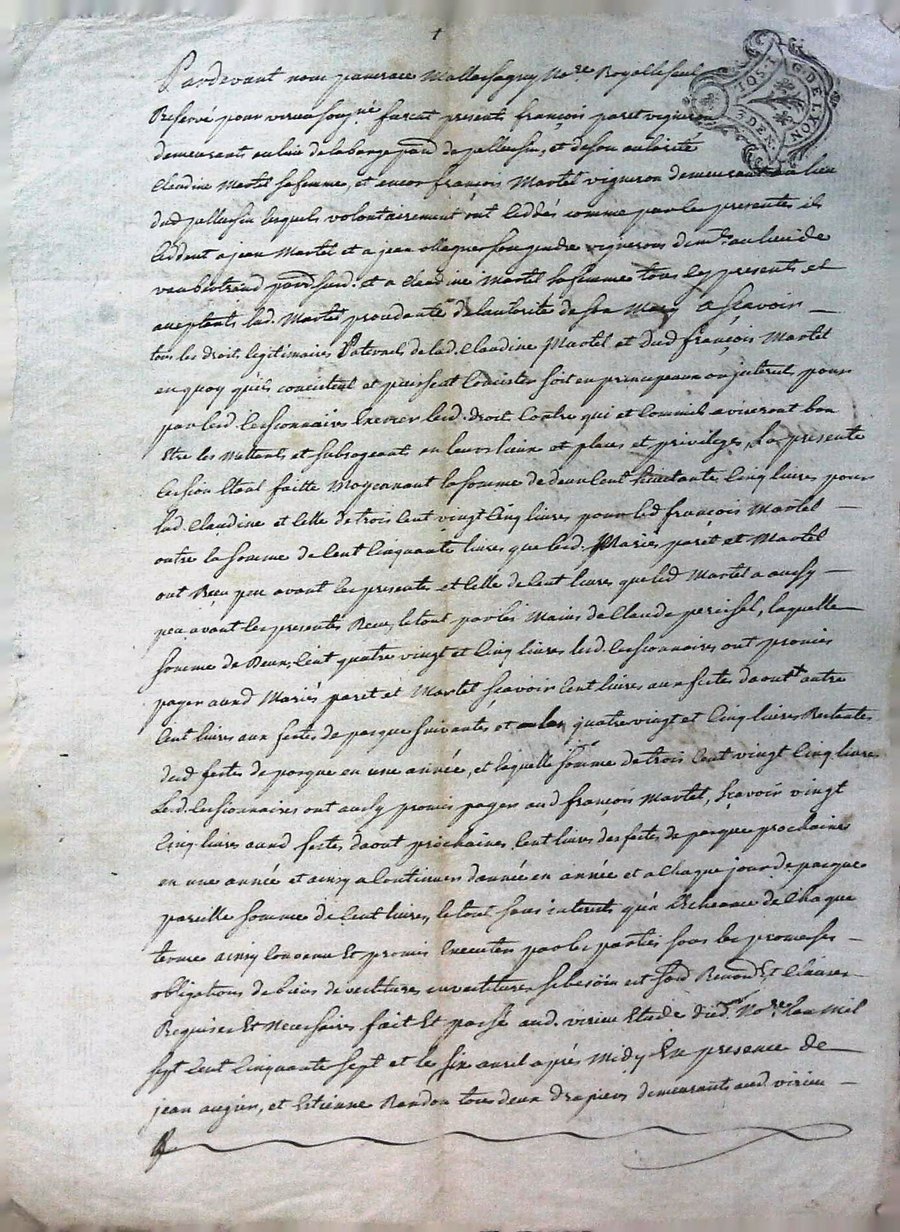 1
G. DE LYON
Pardevant nous pancrace Mallassagny No.re Royal le seul
Reservé pour virieu sousg.né furent presents françois paret vigneron
demeurant au lieu de la barge par.sse de pellussin, et de son autorité
Claudine Martel sa femme, et encor françois Martel vigneron demeurant au lieu
dud pellussin lesquels volontairement ont ceddés comme par les presentes ils
ceddent a jean Martel et a jean son gendre vignerons dem.ts au lieu de
par.sse sud. et a Claudine Martel sa femme tous les presents et
acceptants lad. Martel procedante de l'autorité de son Mary a Sçavoir
tous les droit legitimaires Paternels de lad. Claudine Martel et dud françois Martel
en quoy qu'ils concistent et puissent concister soit en principeaux ou interets pour
par lesd. Cessionnaires Exercer lesd. droit contre qui et comme aviseront bon
Etre les Mettants et subrogeant en leurs lieux et places et privileges, La presente
Cession Etant faitte Moyennant la somme de deux Cent cinq livres pour
lad. Claudine et celle de trois Cent vingt Cinq livres pour led françois Martel
outre la somme de Cent Cinquante livres que lesd. Mariés paret et Martel
ont Reçu peu avant les presentes et celle de Cent livres que led Martel a aussy
peu avant les presentes Reçu, le tout par les Mains de Claude laquelle
somme de Deux Cent quatre vingt et Cinq livres lesd. Cessionnaires ont promis
payer auxd Mariés paret et Martel sçavoir Cent livres aux fêtes d'aout autre
Cent livres aux fêtes de pasque suivantes et les quatre vingt et Cinq livres Restantes
dud festes de pasque en une année, et laquelle somme de trois Cent vingt Cinq livres
Lesd. Cessionnaires ont aussy promis payer aud françois Martel, sçavoir vingt
Cinq livres auxd festes d'aout prochaines Cent livres des festes de pasque prochaines
en une année et ainsy a continuer d'année en année et a chaque jour de pasque
pareille somme de Cent livres, le tout sans interets qu'a Echeance de chaque
terme ainsy convenu Et promis Executer par les parties sous les promesses
obligations de biens de si besoin est Renond Et Clauses
Requises Et Necessaires fait Et passé aud. virieu Etude dud. No.re l'an Mil
sept Cent Cinquante sept et le six avril après Midy En presence de
jean augier, et Etienne Randon tous deux drapiers demeurants aud. virieu